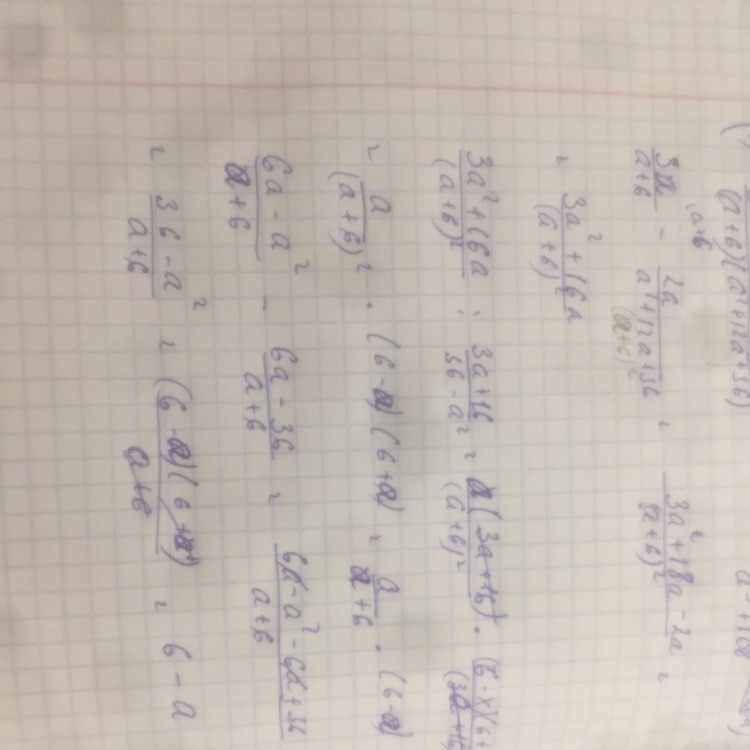 (a+6)(a²+12a+36)
3a/(a+6) - 2a/(a²+12a+36) = (3a²+18a-2a)/(a+6)² =
= (3a²+16a)/(a+6)²
(3a²+16a)/(a+6)² : (3a+16)/(36-a²) = a(3a+16)/(a+6)² · (6-x)(6+/(3a+16)
= a/(a+6)² · (6-a)(6+a) = a/(a+6) · (6-a)
(6a-a²)/(a+6) - (6a-36)/(a+6) = (6a-a²-6a+36)/(a+6)
= (36-a²)/(a+6) = (6-a)(6+a)/(a+6) = 6-a